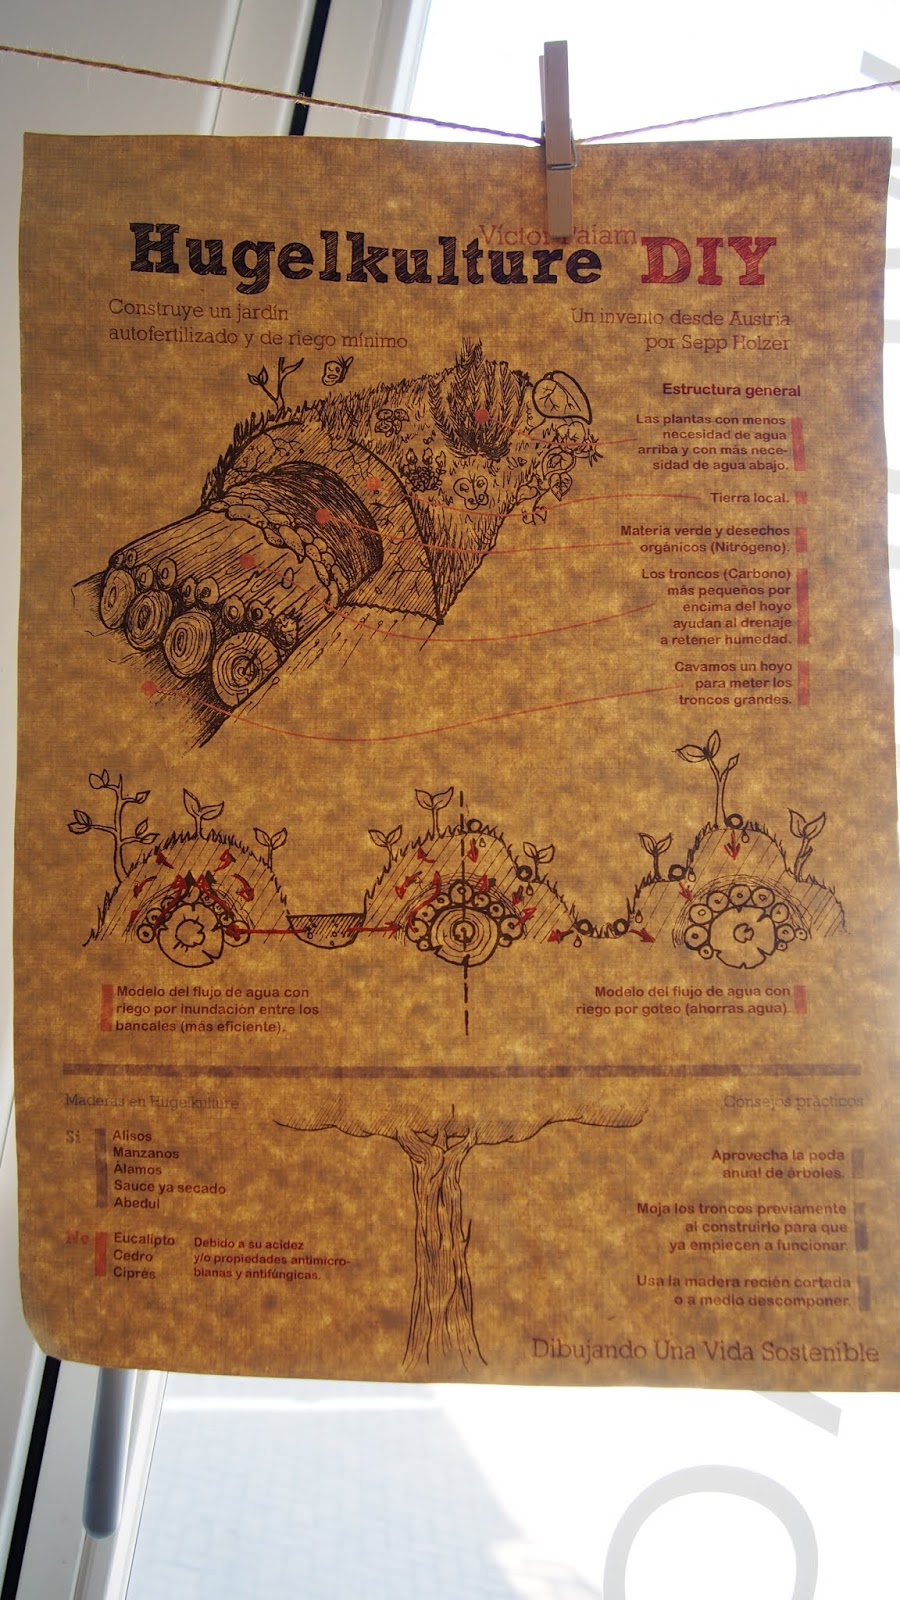 Víctor Paíam
Hugelkulture DIY
Construye un jardín
autofertilizado y de riego mínimo
Un invento desde Austria
por Sepp Holzer
Estructura general
Las plantas con menos
necesidad de agua
arriba y con más nece-
sidad de agua abajo.
Tierra local.
Materia verde y desechos
orgánicos (Nitrógeno).
Los troncos (Carbono)
más pequeños por
encima del hoyo
ayudan al drenaje
a retener humedad.
Cavamos un hoyo
para meter los
troncos grandes.
Modelo del flujo de agua con
riego por inundación entre los
bancales (más eficiente).
Modelo del flujo de agua con
riego por goteo (ahorras agua)
Maderas en Hugelkulture
Si
Alisos
Manzanos
Álamos
Sauce ya secado
Abedul
No
Eucalipto
Cedro
Ciprés
Debido a su acidez
y/o propiedades antimicro-
bianas y antifúngicas.
Consejos prácticos
Aprovecha la poda
anual de árboles.
Moja los troncos previamente
al construirlo para que
ya empiecen a funcionar.
Usa la madera recién cortada
o a medio descomponer.
Dibujando Una Vida Sostenible